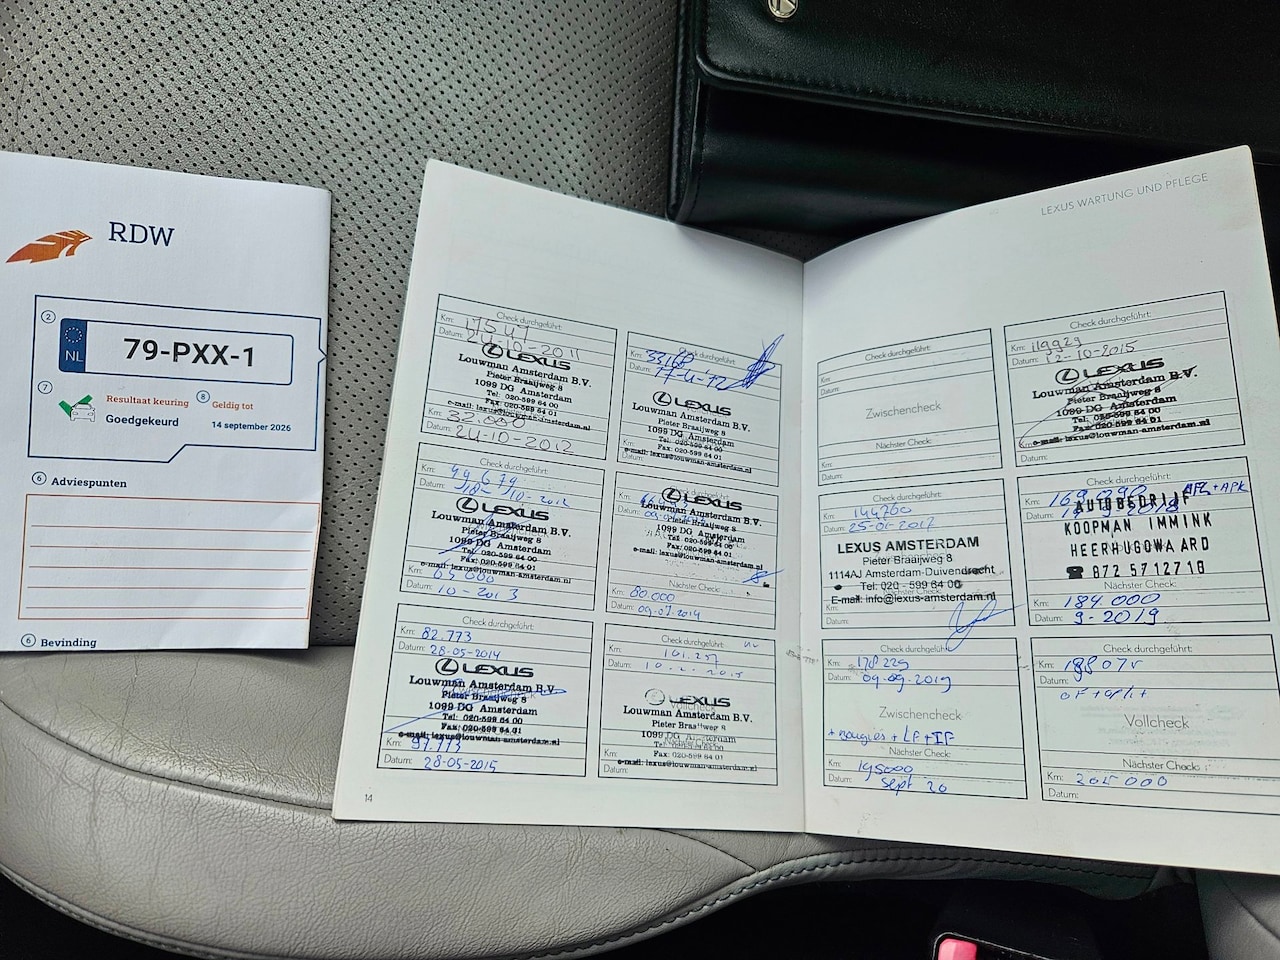 RDW
2
NL
79-PXX-1
7
Resultaat keuring
8
Geldig tot
Goedgekeurd
14 september 2026
6 Adviespunten
6 Bevinding
Check durchgeführt:
Km:
Datum: 24-10-2011
LEXUS
Louwman Amsterdam B.V.
Pieter Braaijweg 8
1099 DG Amsterdam
Tel: 020-599 64 00
Fax: 020-599 64 01
e-mail: lexus@louwman-amsterdam.nl
Km: 32.000
24-10-2012
Check durchgeführt:
Km:
Datum:
LEXUS
Louwman Amsterdam B.V.
Pieter Braaijweg 8
1099 DG Amsterdam
Tel: 020-599 64 00
Fax: 020-599 64 01
e-mail: lexus@louwman-amsterdam.nl
Check durchgeführt:
Km: 49 679
Datum: 18-10-2012
LEXUS
Louwman Amsterdam B.V.
Pieter Braaijweg 8
1099 DG Amsterdam
Tel: 020-599 64 00
Fax: 020-599 64 01
e-mail: lexus@louwman-amsterdam.nl
Km: 65 000
Datum: 10-2013
Check durchgeführt:
Km:
Datum:
LEXUS
Louwman Amsterdam B.V.
Pieter Braaijweg 8
1099 DG Amsterdam
Tel: 020-599 64 00
Fax: 020-599 64 01
e-mail: lexus@louwman-amsterdam.nl
Nächster Check:
Km: 80.000
Datum: 09.07.2014
Check durchgeführt:
Km: 82.773
Datum: 28-05-2014
LEXUS
Louwman Amsterdam B.V.
Pieter Braaijweg 8
1099 DG Amsterdam
Tel: 020-599 64 00
Fax: 020-599 64 01
e-mail: lexus@louwman-amsterdam.nl
Km: 97.773
Datum: 28-05-2015
Check durchgeführt:
Km: 101.257
Datum: 10-2-2015
LEXUS
Louwman Amsterdam B.V.
Pieter Braaijweg 8
1099 DG Amsterdam
Tel: 020-599 64 00
Fax: 020-599 64 01
e-mail: lexus@louwman-amsterdam.nl
Km:
Datum:
14
LEXUS WARTUNG UND PFLEGE
Check durchgeführt:
Km:
Datum:
Zwischencheck
Nächster Check:
Km:
Datum:
Check durchgeführt:
Km: 119929
Datum: 12-10-2015
LEXUS
Louwman Amsterdam B.V.
Pieter Braaijweg 8
1099 DG Amsterdam
Tel: 020-599 64 00
Fax: 020-599 64 01
e-mail: lexus@louwman-amsterdam.nl
Datum:
Check durchgeführt:
Km: 144760
Datum: 25-01-2017
LEXUS AMSTERDAM
Pieter Braaijweg 8
1114AJ Amsterdam-Duivendrecht
Tel: 020 - 599 64 00
E-mail: info@lexus-amsterdam.nl
Datum:
Check durchgeführt:
Km: 169.090
Datum:
+ APK
AUTOBEDRIJF
KOOPMAN IMMINK
HEERHUGOWAARD
☎ 072 5712718
Nächster Check:
Km: 184.000
Datum: 9-2019
Check durchgeführt:
Km: 178225
Datum: 09-09-2019
Zwischencheck
+ Bougies + LF + IF
Nächster Check:
Km: 195000
Datum: sept 20
Check durchgeführt:
Km:
Datum:
Vollcheck
Nächster Check:
Km: 205 000
Datum: